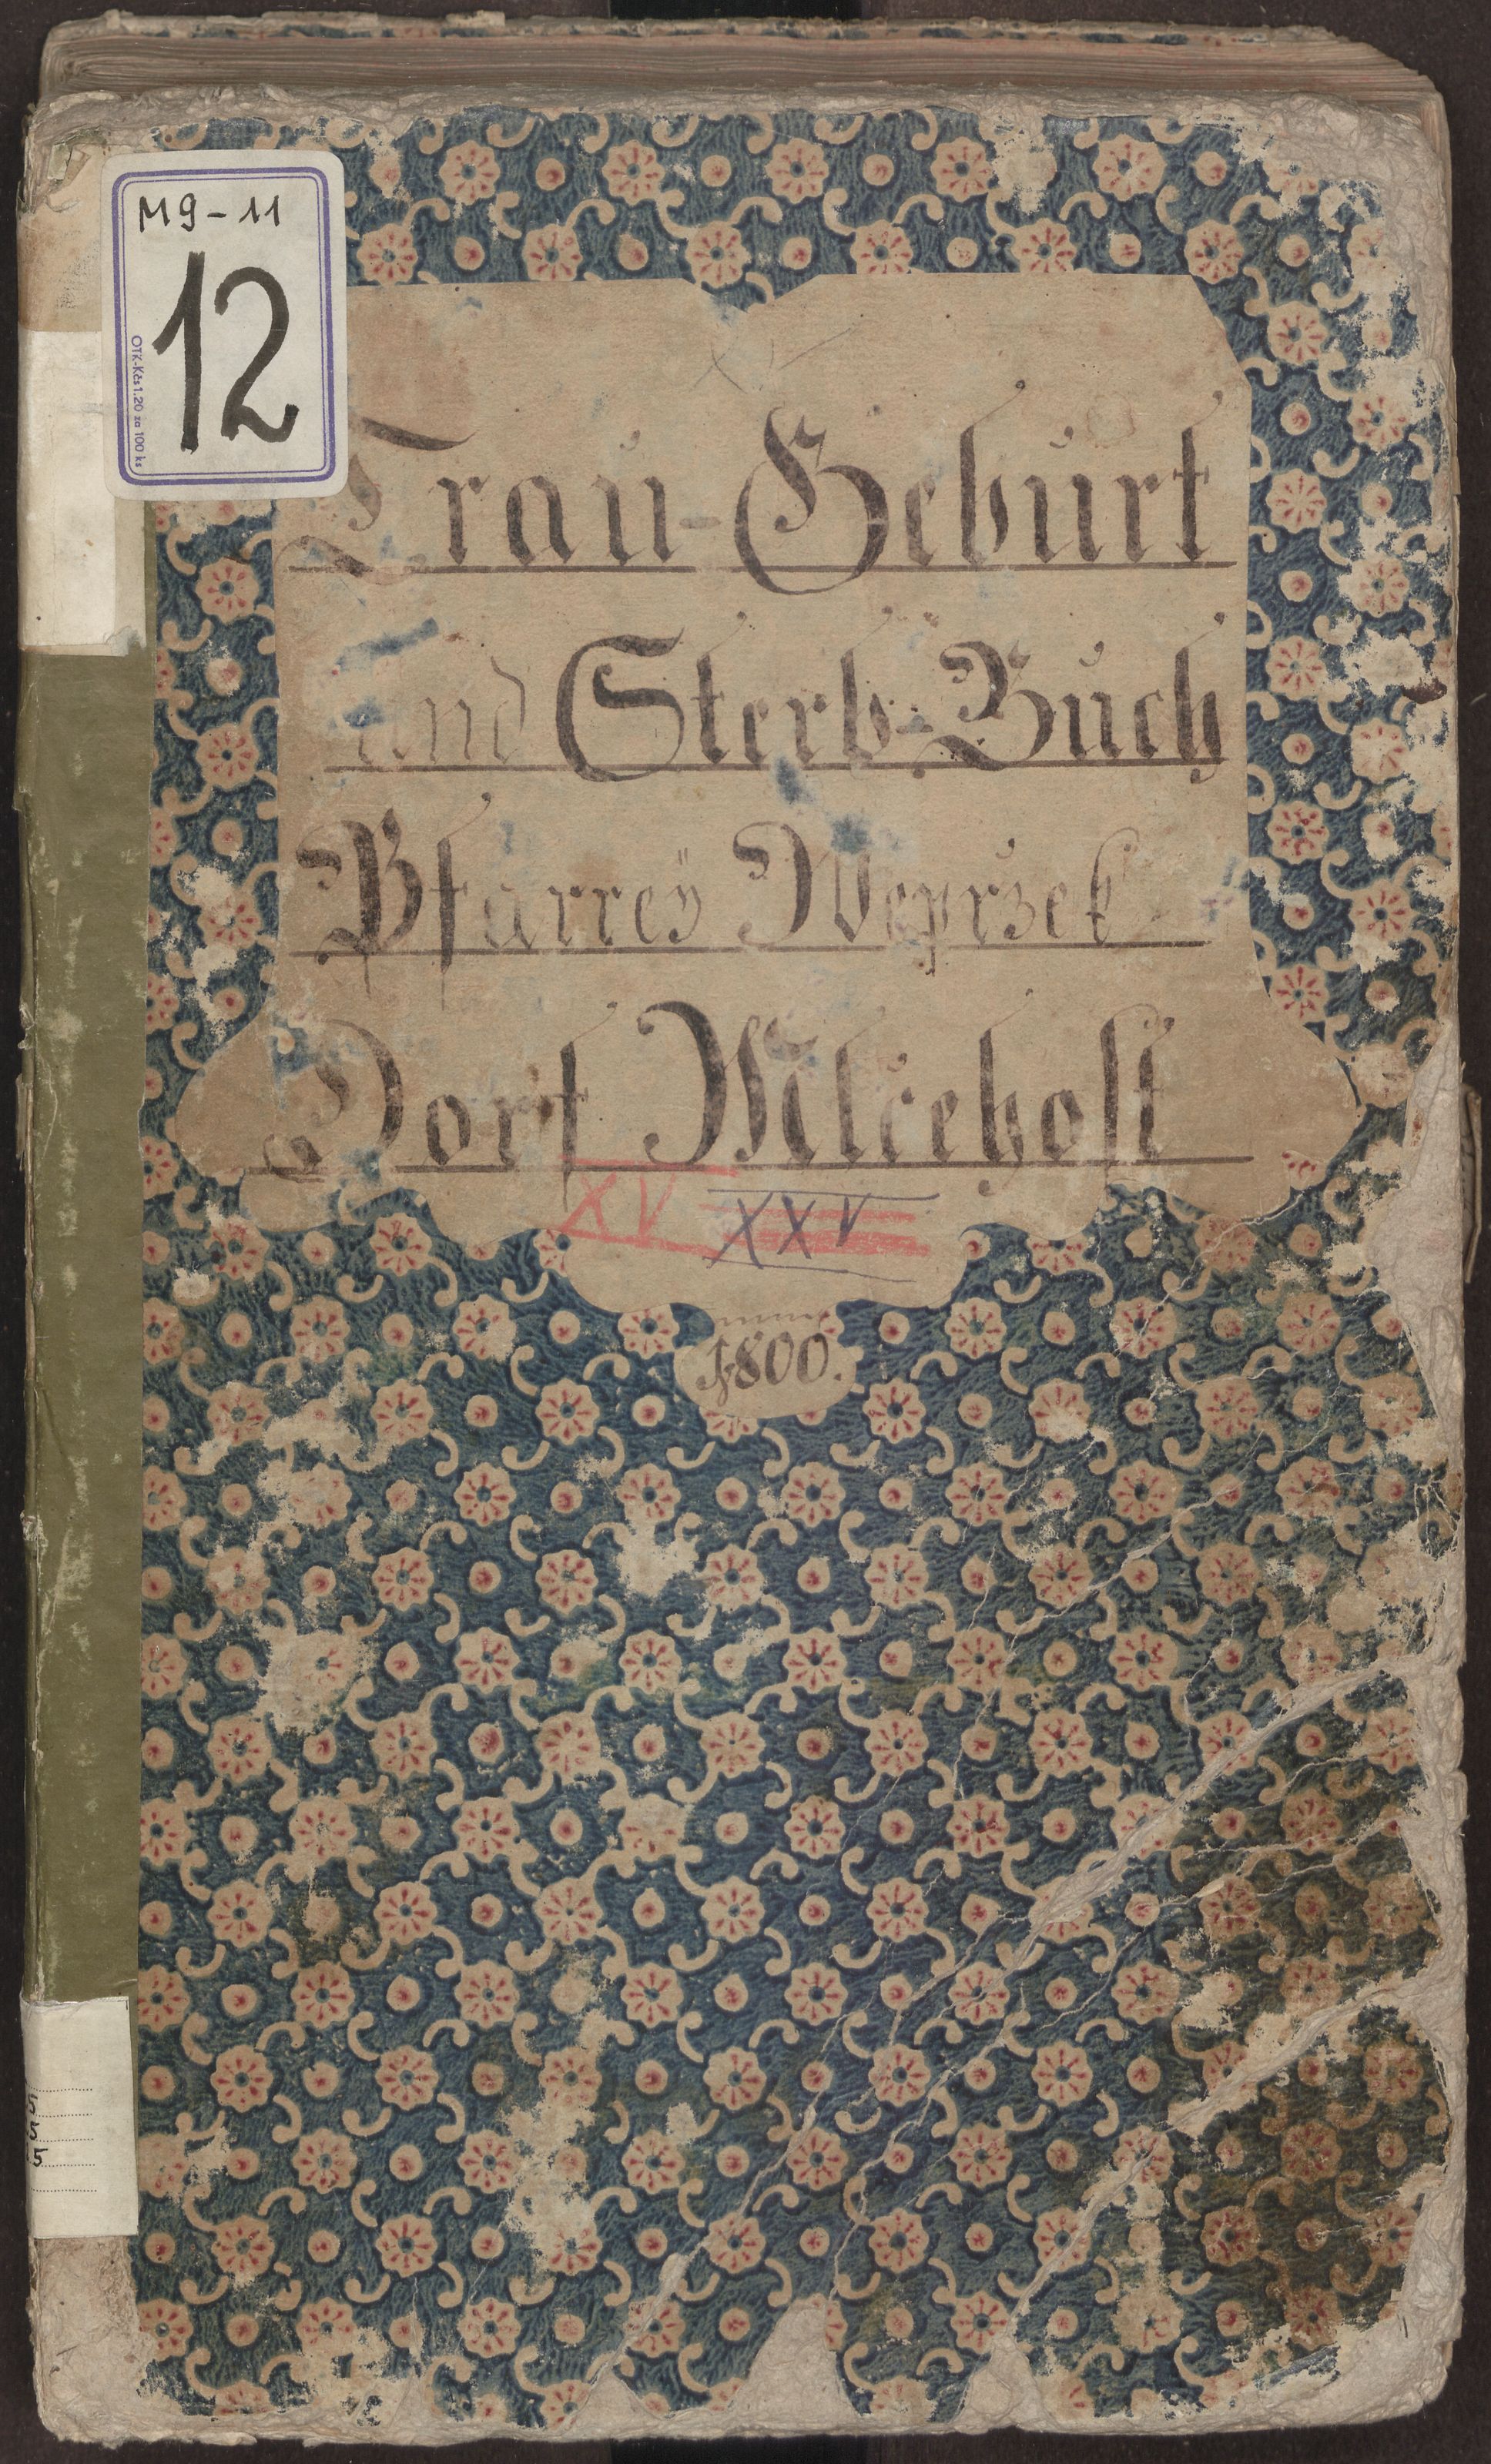 M9-11
12
OTK-Kčs 1.20 za 100 ks
Trau-Geburt
und Sterb-Buch
Pfarreÿ Weprzek
Dorf Mlcehost
XV XXV
1800.
5
5
5